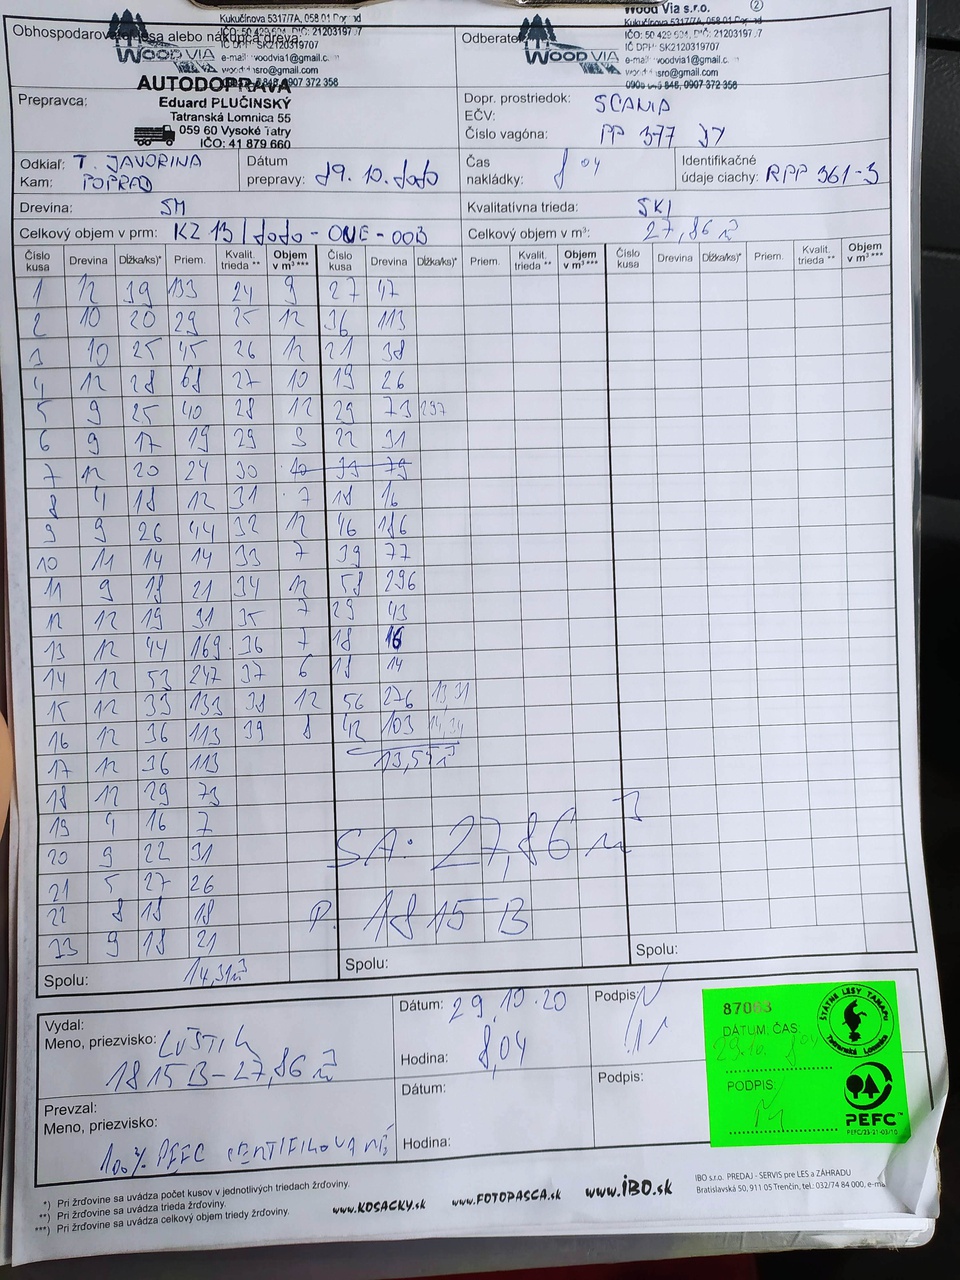 Kukučínova 5317/7A, 058 01
Obhospodarovateľ lesa alebo nákupca dreva:
IČO: 50 429 531, DIČ: 21203197 7
IČ DPH: SK2120319707
WOOD VIA
e-mail: woodvia1@gmail.com
0907 372 358
Wood Via s.r.o.
Kukučínova 5317/7A, 058 01
Odberateľ:
IČ DPH: SK2120319707
WOOD VIA
e-mail: woodvia1@gmail.com
0907 372 358
AUTODOPRAVA
Prepravca:
Eduard PLUČINSKÝ
Tatranská Lomnica 55
059 60 Vysoké Tatry
IČO: 41 879 660
Dopr. prostriedok: SCANIA
EČV:
Číslo vagóna: PP 377
Odkiaľ: T. JAVORINA
Kam: POPRAD
Dátum prepravy: 29.10.2020
Čas nakládky: 8 04
Identifikačné údaje ciachy: RPP 361-3
Drevina: SM
Kvalitatívna trieda:
Celkový objem v prm: KZ 13/2020-OUE-003
Celkový objem v m³: 27,86 m³
Číslo kusa Drevina Dĺžka/ks)* Priem. Kvalit. trieda ** Objem v m³ *** Číslo kusa Drevina Dĺžka/ks)* Priem. Kvalit. trieda ** Objem v m³ *** Číslo kusa Drevina Dĺžka/ks)* Priem. Kvalit. trieda ** Objem v m³ ***
1 12 39 133 24 9 27 47
2 10 20 29 25 12 36 113
3 10 25 45 26 12 21 38
4 12 28 68 27 10 19 26
5 9 25 40 28 12 29 73 297
6 9 17 19 29 9 22 31
7 12 20 24 30 10 39 79
8 4 18 12 31 7 18 16
9 9 26 44 32 12 46 186
10 11 14 14 33 7 39 77
11 9 18 21 34 12 58 296
12 12 19 31 35 7 29 43
13 12 44 169 36 7 18 16
14 12 53 247 37 6 18 14
15 12 39 133 38 12 56 276 13,31
16 12 36 113 39 8 42 103
17 12 36 113 13,55 m³
18 12 29 73
19 4 16 7
20 9 22 31
21 5 27 26
22 8 18 18
23 9 18 21
SA: 27,86 m³
P. 1815 B
Spolu: 14,31 m³
Spolu:
Spolu:
Vydal:
Meno, priezvisko:
1815B-27,86 m³
Dátum: 29.10.20
Hodina: 8,04
Podpis:
Prevzal:
Meno, priezvisko:
Dátum:
Hodina:
Podpis:
100% PEFC CERTIFIKOVANÉ
ŠTÁTNE LESY TANAPU
Tatranská Lomnica
DÁTUM, ČAS:
29.10. 8 04
PODPIS:
PEFC™
PEFC/23-21-03/10
*) Pri žrďovine sa uvádza počet kusov v jednotlivých triedach žrďoviny.
**) Pri žrďovine sa uvádza trieda žrďoviny.
***) Pri žrďovine sa uvádza celkový objem triedy žrďoviny.
www.KOSACKY.sk www.FOTOPASCA.sk www.iBO.sk
IBO s.r.o. PREDAJ - SERVIS pre LES a ZÁHRADU
Bratislavská 50, 911 05 Trenčín, tel.: 032/74 84 000,